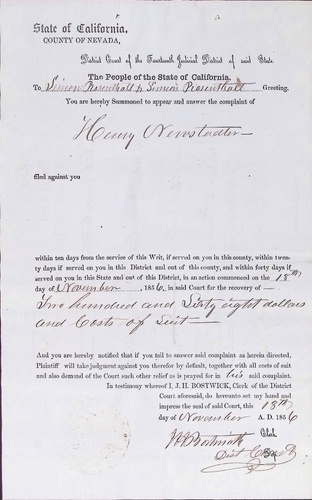 State of California,
COUNTY OF NEVADA,
District Court of the Fourteenth Judicial District of said State.
The People of the State of California.
To Simon Rosenthall & Simon Rosenthall Greeting.
You are hereby Summoned to appear and answer the complaint of
Henry Newstadter
filed against you
within ten days from the service of this Writ, if served on you in this county, within twen-
ty days if served on you in this District and out of this county, and within forty days if
served on you in this State and out of this District, in an action commenced on the 18th
day of November, 1856, in said Court for the recovery of
Two hundred and Sixty eight dollars
and Costs of Suit
And you are hereby notified that if you fail to answer said complaint as herein directed,
Plaintiff will take judgment against you therefor by default, together with all costs of suit
and also demand of the Court such other relief as is prayed for in his said complaint.
In testimony whereof I, J. H. BOSTWICK, Clerk of the District
Court aforesaid, do hereunto set my hand and
impress the seal of said Court, this 18th
day of November A. D. 1856
J H Bostwick Clerk
Dist Court